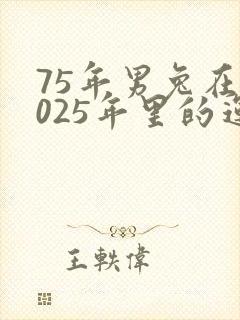 75年男兔在
025年里的运
王軼偉